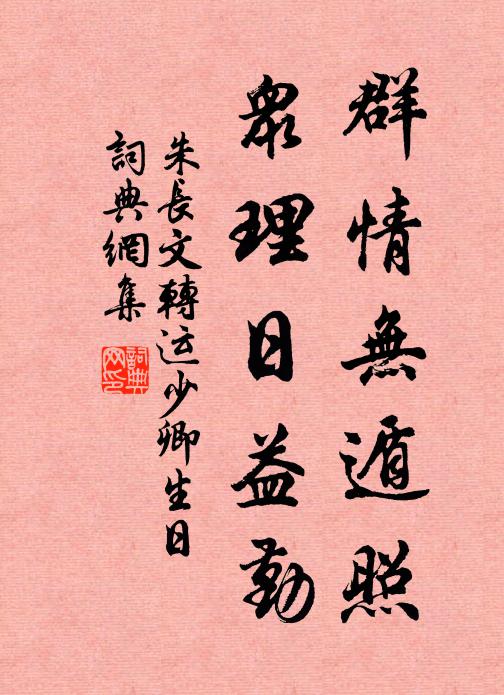 群情無遁照
衆理日益勤
朱長文轉运少卿生日
詞典網集
詞典網印